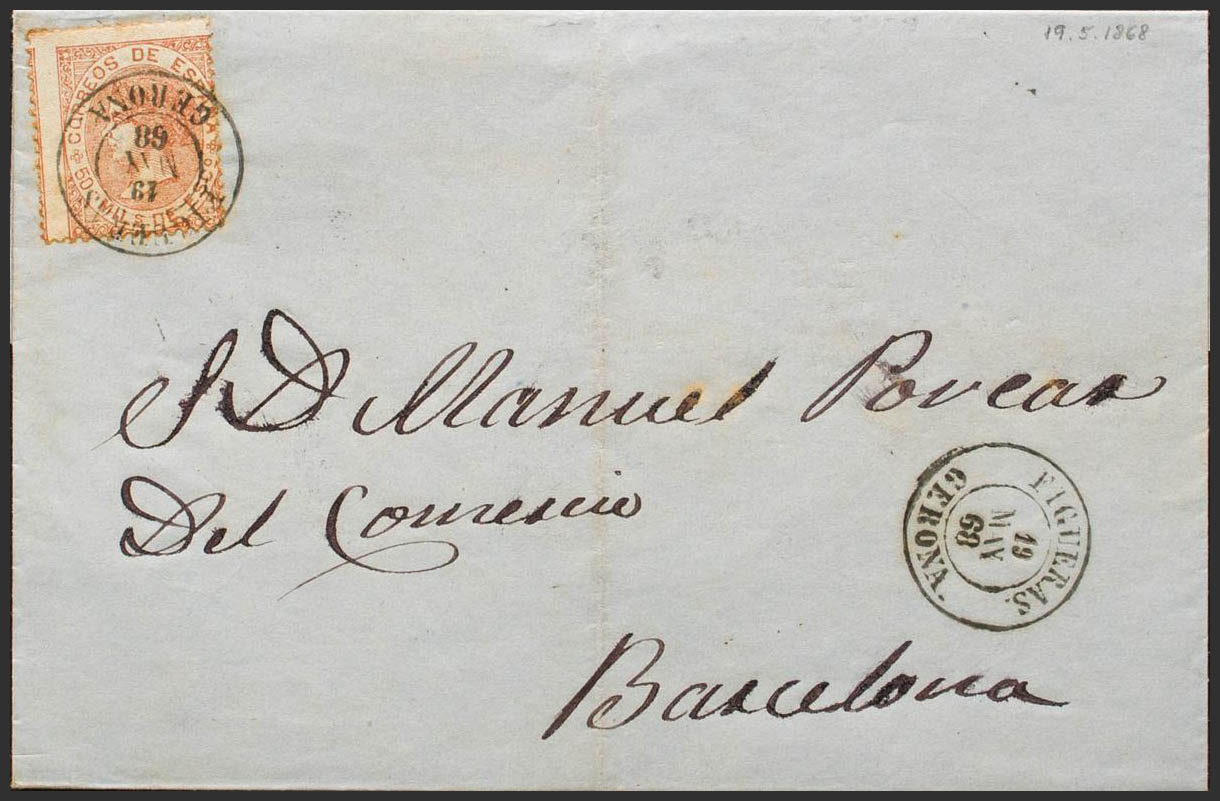 19.5.1868
CORREOS DE ESPAÑA
50 MILS DE ESCO
FIGUERAS
19
MAY
68
GERONA
Sr D Manuel Porcar
Del Comercio
FIGUERAS.
19
MAY
68
GERONA.
Barcelona